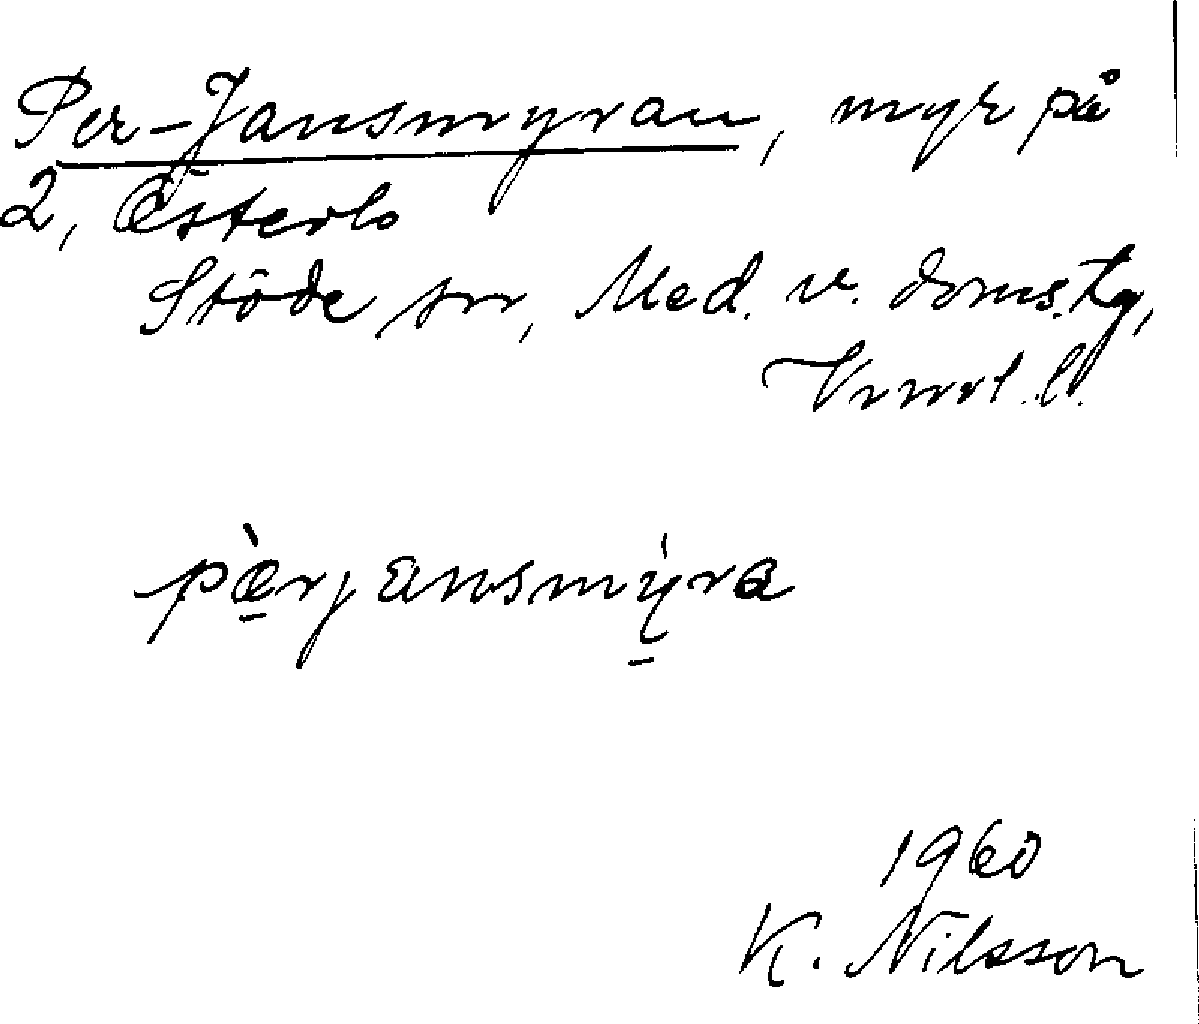 Per-Jansmyran, myr på
2, Österlo
Stöde sn, Med. v. doms.tg,
Vrnrl. l.
pæ̀rjansmy̆ra
1960
K. Nilsson